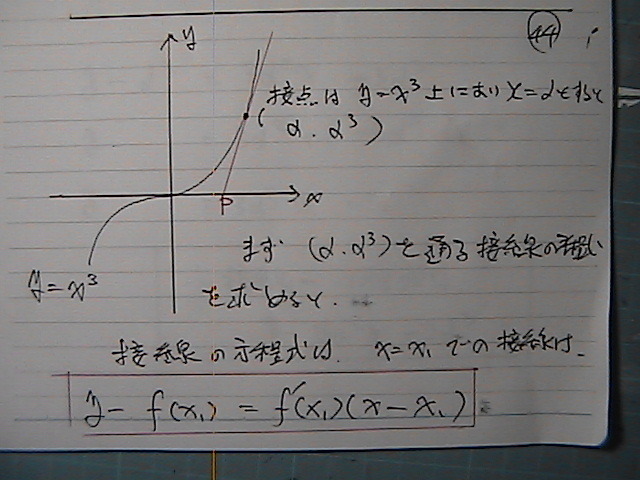 44
y
接点は y=x³上にあり x=αとすると
(α.α³)
x
P
y=x³
まず (α.α³)を通る接線の方程式
を求めると.
接線の方程式は. x=x₁での接線は.
y-f(x₁)=f'(x₁)(x-x₁)